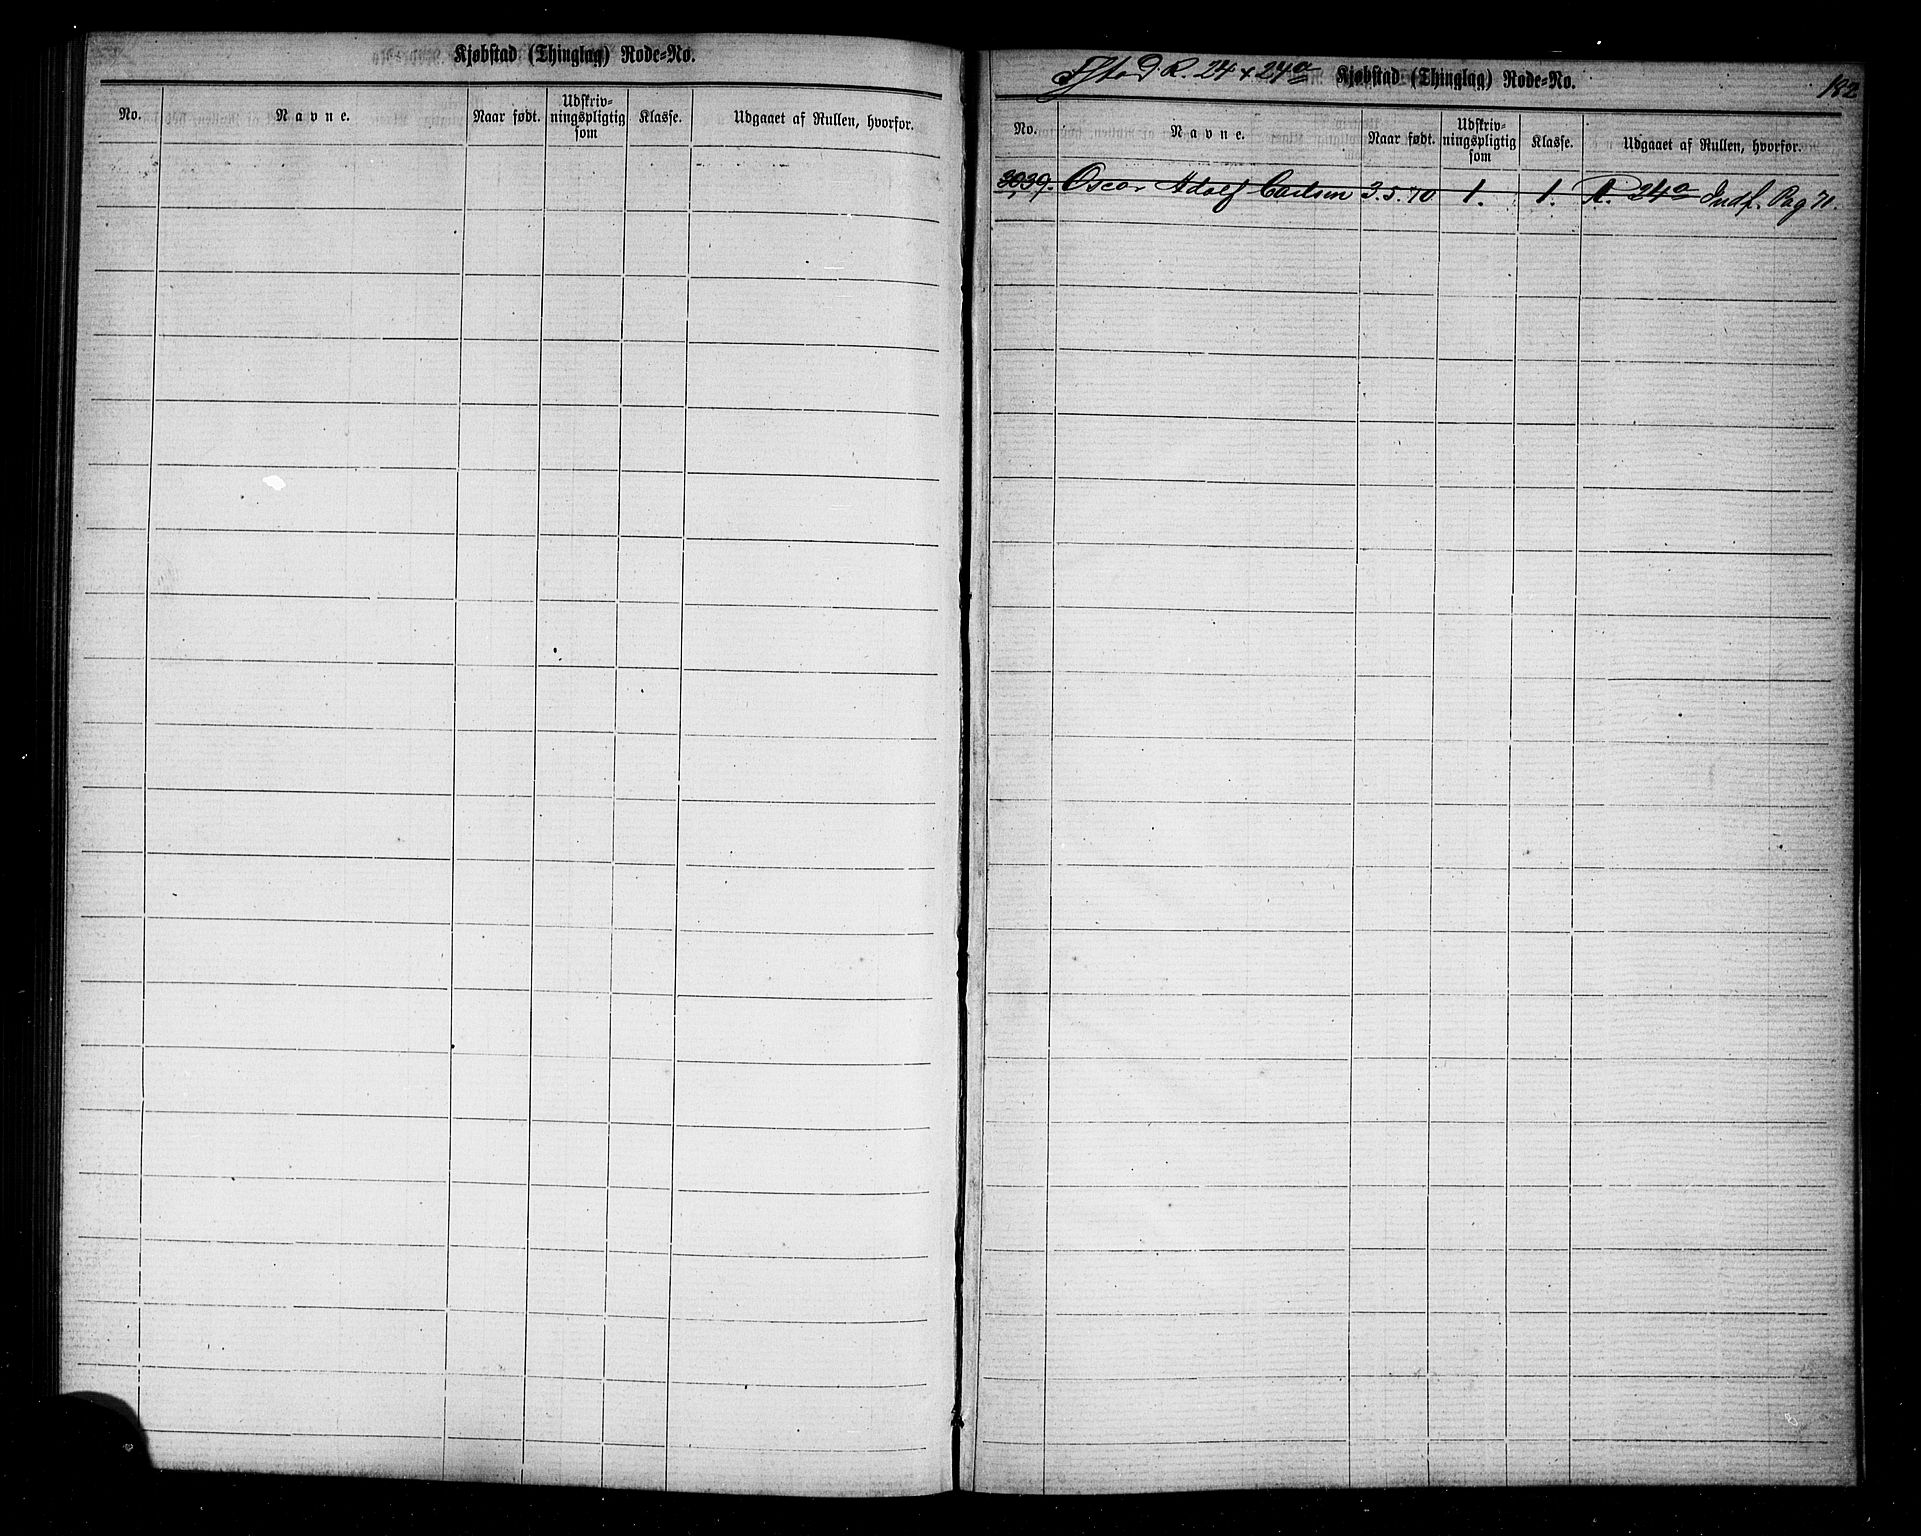 Kjøbstad (Thinglag) Rode-No.
No. Navne. Naar født. Udskriv-ningspligtig som Klasse. Udgaaet af Rullen, hvorfor.
R. 24 + 24a Kjøbstad (Thinglag) Rode-No. 182
No. Navne. Naar født. Udskriv-ningspligtig som Klasse. Udgaaet af Rullen, hvorfor.
3039. Oscar Adolf Carlsen 3.5.70 1. 1. R. 24a Indf. Pag 71.